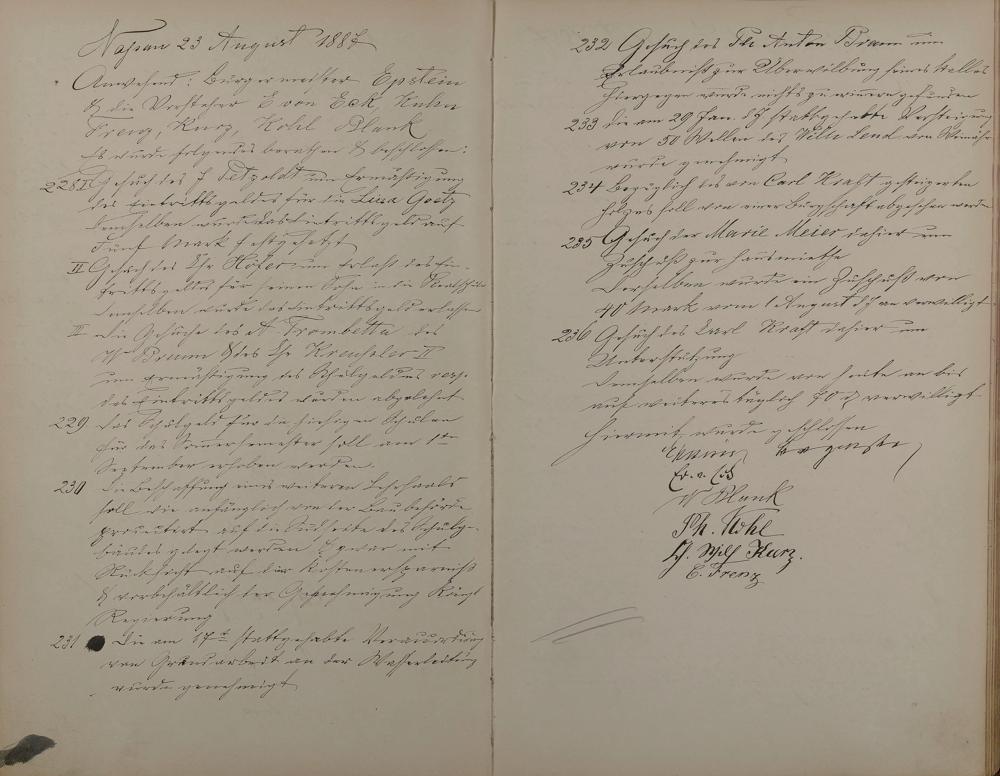 Nassau 23 August 1887
Anwesend: Bürgermeister Epstein
& die Vorsteher E von Eck, Kuhn
Frenz, Kurz, Kohl Blank
Es wurde folgendes berathen & beschlossen:
228 I Gesuch des J Petzoldt um Ermäßigung
des Eintrittsgeldes für die Luise Goetz
Demselben wurde das Eintrittsgeld auf
Fünf Mark festgesetzt
II Gesuch des Chr Höfer um Erlaß des Ein-
trittsgeldes für seinen Sohn in die Realschule
Demselben wurde das Eintrittsgeld erlassen
III Die Gesuche des A Trombetta des
W Bruum & des Chr Kreuseler II
um Ermäßigung des Schulgeldes resp.
des Eintrittsgeldes wurden abgelehnt
229 Das Schulgeld für die hiesigen Schulen
für das Sommersemester soll am 1ten
September erhoben werden.
230 Die Beschaffung eines weiteren Lehrsaals
soll wie anfänglich von der Baubehörde
projectirt auf die Südseite des Schulge-
bäudes gelegt werden & zwar mit
Rücksicht auf die Kostenersparniß
& vorbehältlich der Genehmigung Königl
Regierung
231 Die am 17t stattgehabte Veraccordirung
von Grundarbeit an der Wasserleitung
wurde genehmigt
232 Gesuch des Ph. Anton Braun um
Erlaubniß zur Überwölbung seines Kellers
Hiergegen wurde nichts zu erinnern gefunden
233 Die am 29 Jan. d J. stattgehabte Versteigerung
von 50 Wellen des Wilh Lend von
wurde genehmigt
234 Bezüglich des von Carl Kraft gesteigerten
Holzes soll von einer Bürgschaft abgesehen werden
235 Gesuch der Marie Meier dahier um
Zuschuß zur Hausmiethe
Derselben wurde ein Zuschuß von
40 Mark vom 1 August d J an verwilligt
236 Gesuch des Carl Kraft dahier um
Unterstützung
Demselben wurde von heute an bis
auf weiteres täglich 70 ₰ verwilligt
Hiermit wurde geschlossen
Ed. v. Eck
W Blank
Ph. Kohl
Wilh Kurz.
C. Frenz